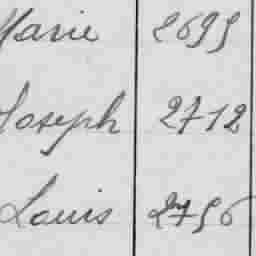 Marie 2695
Joseph 2712
Louis 2756